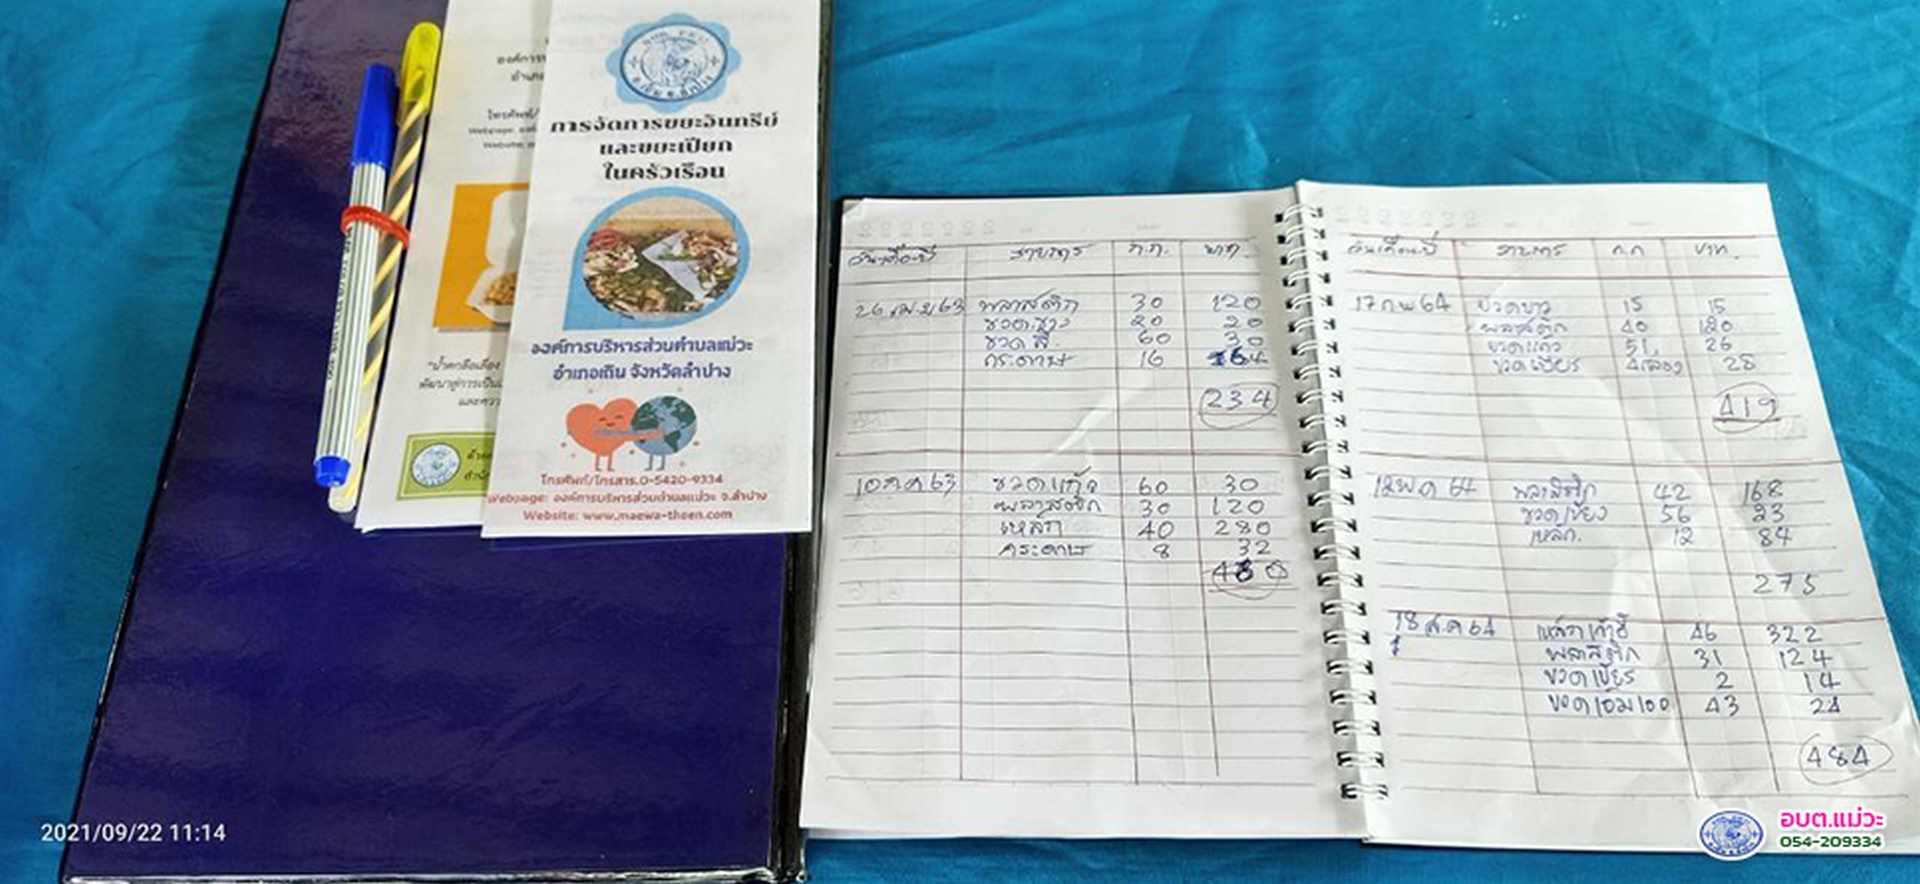 การจัดการขยะอินทรีย์
และขยะเปียก
ในครัวเรือน
องค์การบริหารส่วนตำบลแม่วะ
อำเภอเถิน จังหวัดลำปาง
โทรศัพท์/โทรสาร.0-5420-9334
Webpage: องค์การบริหารส่วนตำบลแม่วะ จ.ลำปาง
Website: www.maewa-thoen.com
วันเดือนปี รายการ ก.ก. บาท.
26 เม.ย 63 พลาสติก 30 120
ขวดขาว 20 20
ขวด.สี 60 30
กระดาษ 16 64
234
10 ต.ค 63 ขวดแก้ว 60 30
พลาสติก 30 120
เหล็ก 40 280
กระดาษ 8 32
วันเดือนปี รายการ ก.ก บาท.
17 ก.พ 64 ขวดขาว 15 15
พลาสติก 40
ขวดแก้ว 51 26
ขวดเบียร์ 4ลัง 28
419
12 พ.ค 64 พลาสติก 42 168
56 23
เหล็ก. 12 84
275
18 ส.ค 64 46 322
พลาสติก 31 124
ขวดเบียร์ 2 14
43 24
484
2021/09/22 11:14
อบต.แม่วะ
054-209334